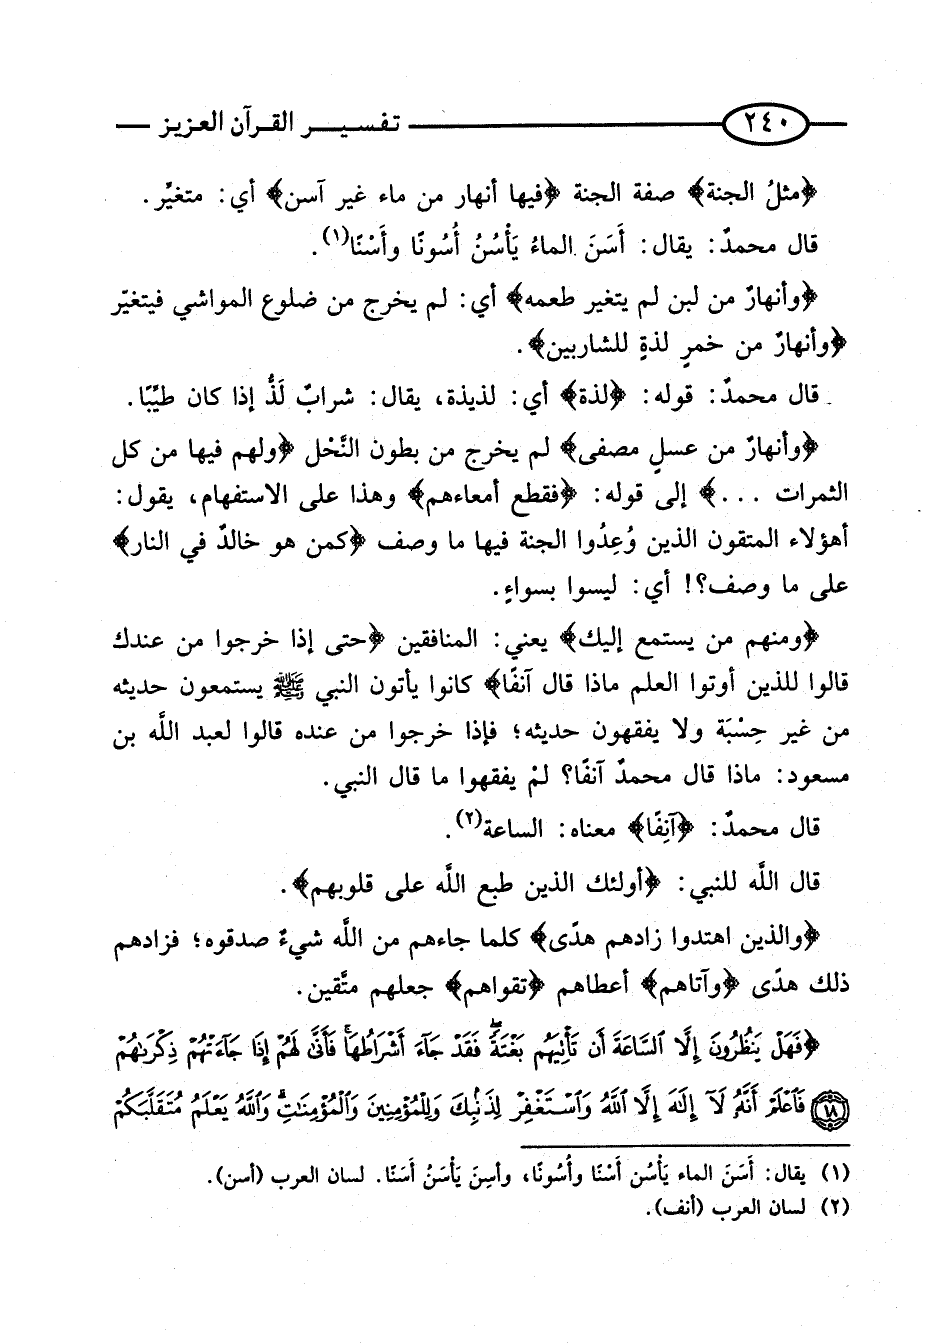 ٢٤٠ تفسير القرآن العزيز
﴿مثلُ الجنة﴾ صفة الجنة ﴿فيها أنهار من ماء غير آسن﴾ أي: متغيِّر.
قال محمدٌ: يقال: أَسَنَ الماءُ يَأْسُنُ أُسُونًا وأَسْنًا(١).
﴿وأنهارٌ من لبن لم يتغير طعمه﴾ أي: لم يخرج من ضلوع المواشي فيتغيّر
﴿وأنهارٌ من خمرٍ لذةٍ للشاربين﴾.
قال محمدٌ: قوله: ﴿لذة﴾ أي: لذيذة، يقال: شرابٌ لَذٌّ إذا كان طيِّبًا.
﴿وأنهارٌ من عسلٍ مصفى﴾ لم يخرج من بطون النَّحْل ﴿ولهم فيها من كل
الثمرات ...﴾ إلى قوله: ﴿فقطع أمعاءهم﴾ وهذا على الاستفهام، يقول:
أهؤلاء المتقون الذين وُعِدُوا الجنة فيها ما وصف ﴿كمن هو خالدٌ في النار﴾
على ما وصف؟! أي: ليسوا بسواءٍ.
﴿ومنهم من يستمع إليك﴾ يعني: المنافقين ﴿حتى إذا خرجوا من عندك
قالوا للذين أوتوا العلم ماذا قال آنفًا﴾ كانوا يأتون النبي ﷺ يستمعون حديثه
من غير حِسْبَة ولا يفقهون حديثه؛ فإذا خرجوا من عنده قالوا لعبد اللَّه بن
مسعود: ماذا قال محمدٌ آنفًا؟ لمْ يفقهوا ما قال النبي.
قال محمدٌ: ﴿آنِفًا﴾ معناه: الساعة(٢).
قال اللَّه للنبي: ﴿أولئك الذين طبع اللَّه على قلوبهم﴾.
﴿والذين اهتدوا زادهم هدًى﴾ كلما جاءهم من اللَّه شيءٌ صدقوه؛ فزادهم
ذلك هدًى ﴿وآتاهم﴾ أعطاهم ﴿تقواهم﴾ جعلهم متَّقين.
﴿فَهَلْ يَنظُرُونَ إِلَّا ٱلسَّاعَةَ أَن تَأْتِيَهُم بَغْتَةً ۖ فَقَدْ جَآءَ أَشْرَاطُهَا ۚ فَأَنَّىٰ لَهُمْ إِذَا جَآءَتْهُمْ ذِكْرَىٰهُمْ
﴿١٨﴾ فَٱعْلَمْ أَنَّهُۥ لَآ إِلَٰهَ إِلَّا ٱللَّهُ وَٱسْتَغْفِرْ لِذَنۢبِكَ وَلِلْمُؤْمِنِينَ وَٱلْمُؤْمِنَٰتِ ۗ وَٱللَّهُ يَعْلَمُ مُتَقَلَّبَكُمْ
(١) يقال: أَسَنَ الماء يَأْسُن أَسْنًا وأُسُونًا، وأسِنَ يَأْسَنُ أَسَنًا. لسان العرب (أسن).
(٢) لسان العرب (أنف).